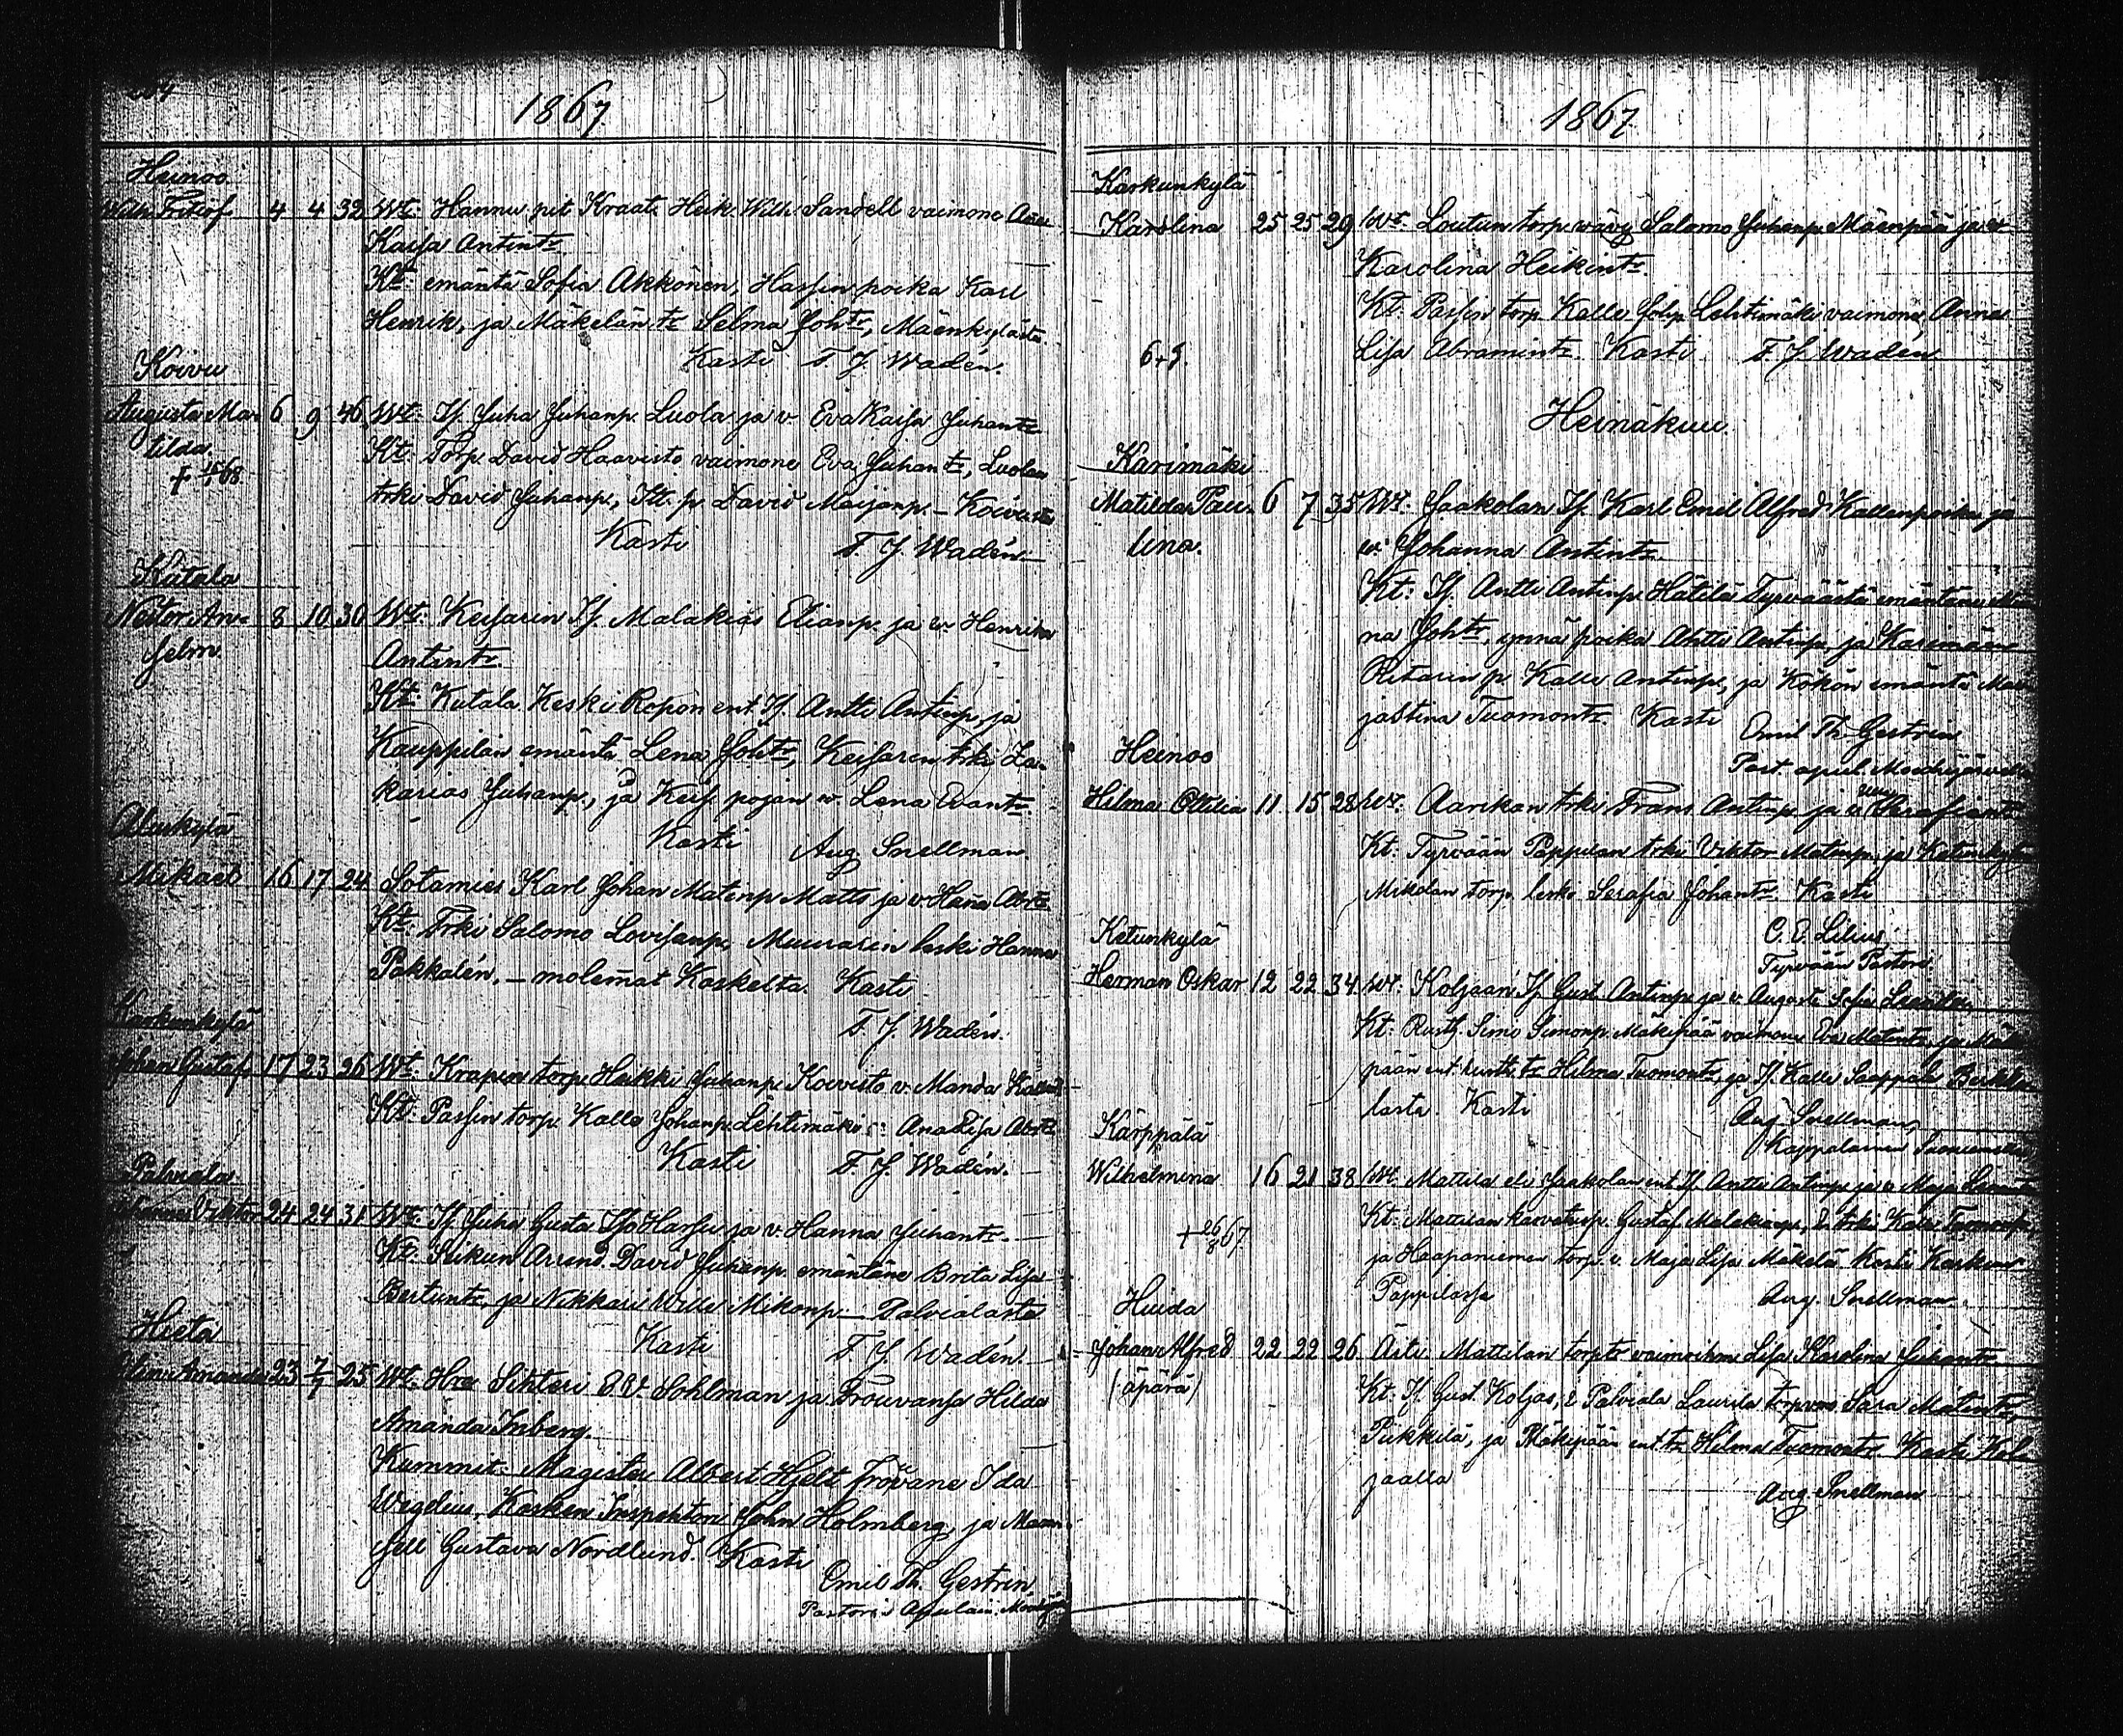 1867
Heinoo
Wilh. Fritiof 4 4 32 Wt. Hannu pit Kraat. Heik. Wilh. Sandell vaimone
Kaisa Antintr
Kt. emäntä Sofia Akkonen, Hassin poika Karl
Henrik, ja Mäkelän tr Selma Johtr, Mäenkylästä
Kasti F. J. Wadén.
Koivu
Augusta Ma- 6 9 46 Wt. If. Juha Juhanp. Luola ja v. Eva Kaisa Juhantr
tilda. Kt. Torp. David Haavisto vaimone Eva Juhantr, Luolan
trki David Juhanp., Itt. p. David Maijanp. – Koivusta
Kasti F. J. Wadén
Kutala
Nestor An- 8 10 30 Wt. Keisarin If. Malakias Elianp. ja v. Henrika
selm Antintr.
Kt. Kutala Keski Ropon ent If. Antti Antinp. ja
Kauppilan emäntä Lena Johtr, Keisarin trki Za-
karias Juhanp., ja Keis pojan v. Lena Evantr.
Kasti Aug. Snellman.
Aluskylä
Mikael 16 17 24 Sotamies Karl Johan Matinp Matts ja v Hana Abrtr.
Kt. Trki Salomo Lovisanp, Muurarin leski Hanna
Pakkalén. – molemat Kaskelta. Kasti
F. J. Wadén.
Karkunkylä
Johan Gustaf 17 23 26 Wt. Krapin torp. Heikki Juhanp. Koivisto v. Manda
Kt. Passin torp. Kalle Johanp. Lehtimäki v. Ana Lisa Abrtr
Kasti F. J. Wadén.
Palviala
Viktor 24 24 31 Wt. If. Juha Gusta Hassu ja v. Hanna Juhantr.
Kt. Arend. David Juhanp. emäntäne Brita Lisa
Bertuntr, ja Nikkari Wille Mikonp. – Palvialasta
Kasti F. J. Wadén.
Hieta
Amanda 23 7/7 25 Wt. Hra Sihteri E. V. Sohlman ja Frouvansa Hilda
Amanda Inberg.
Kummit. Magister Albert Hjelt frovane Ida
Wigelius, Kosken Inspehtori John Holmberg, ja Mam-
sell Gustava Nordlund. Kasti
Emil Th. Gestrin,
Pastorin Apulain.
1867
Karkunkylä
Karolina 25 25 29 Wt. Loutun torp. wävy Salomo Juhanp. Mäenpää ja v
Karolina Heikintr.
Kt. Passin torp Kalle Johp. Lehtimäki vaimone, Anna
Lisa Abramintr. Kasti F. J. Wadén
Heinäkuu.
Karimäki
Matilda Pau- 6 7 35 Wt. Jaakolan If. Karl Emil Alfred Kallenpoika ja
lina. v. Johanna Antintr.
Kt. If. Antti Antinp. Hätilä Tyrväästä emäntäne
na Johtr, ynnä poika Antti Antinp. ja Karimäen
Ritarin p. Kalle Antinp., ja Kökön emäntä Mar-
jastina Tuomontr. Kasti Emil Th. Gestrin
Past. apul.
Heinoo
Hilma Ottilia 11 15 28 Wt. Aarikan trki Frans Antinp. ja v.
Kt. Tyrvään Pappilan trki Viktor Matinp. ja Ketunkylän
Mikolan torp. leski Serafia Johantr. Kasti
C. E. Lilius,
Tyrvään Pastori.
Ketunkylä
Herman Oskar 12 22 34 Wt. Koljaan If. Gust. Antinp. ja v. Augusta Sofia
Kt. Rustf. Simo Simonp. Mäkipää vaimone Eva Matintr. ja Mäki-
pään ent. rustit. tr Hilma Tuomontr, ja If. Kalle Saappala
lasta. Kasti Aug. Snellman,
Kappalainen
Kärppälä
Wilhelmina 16 21 38 Wt. Mattila eli Jaakolan ent If. Antti Antinp. ja v. Maja
Kt. Mattilan karvatorp. Gustaf Malakianp. trki Kalle Tuomonp.
ja Haapaniemen torp. v. Maja Lisa Mäkelä. Kasti Karkun
Pappilassa Aug. Snellman.
Huida
Johan Alfred 22 22 26 Äiti Mattilan torp tr vaimoihm Lisa Karolina Juhantr
(äpärä) Kt. If. Gust. Koljas, & Palviala Laurila torpvas Sara Matintr,
Piikkilä, ja Mäkipään ent. tr Hilma Tuomontr. Kasti Kol-
jaalla Aug. Snellman